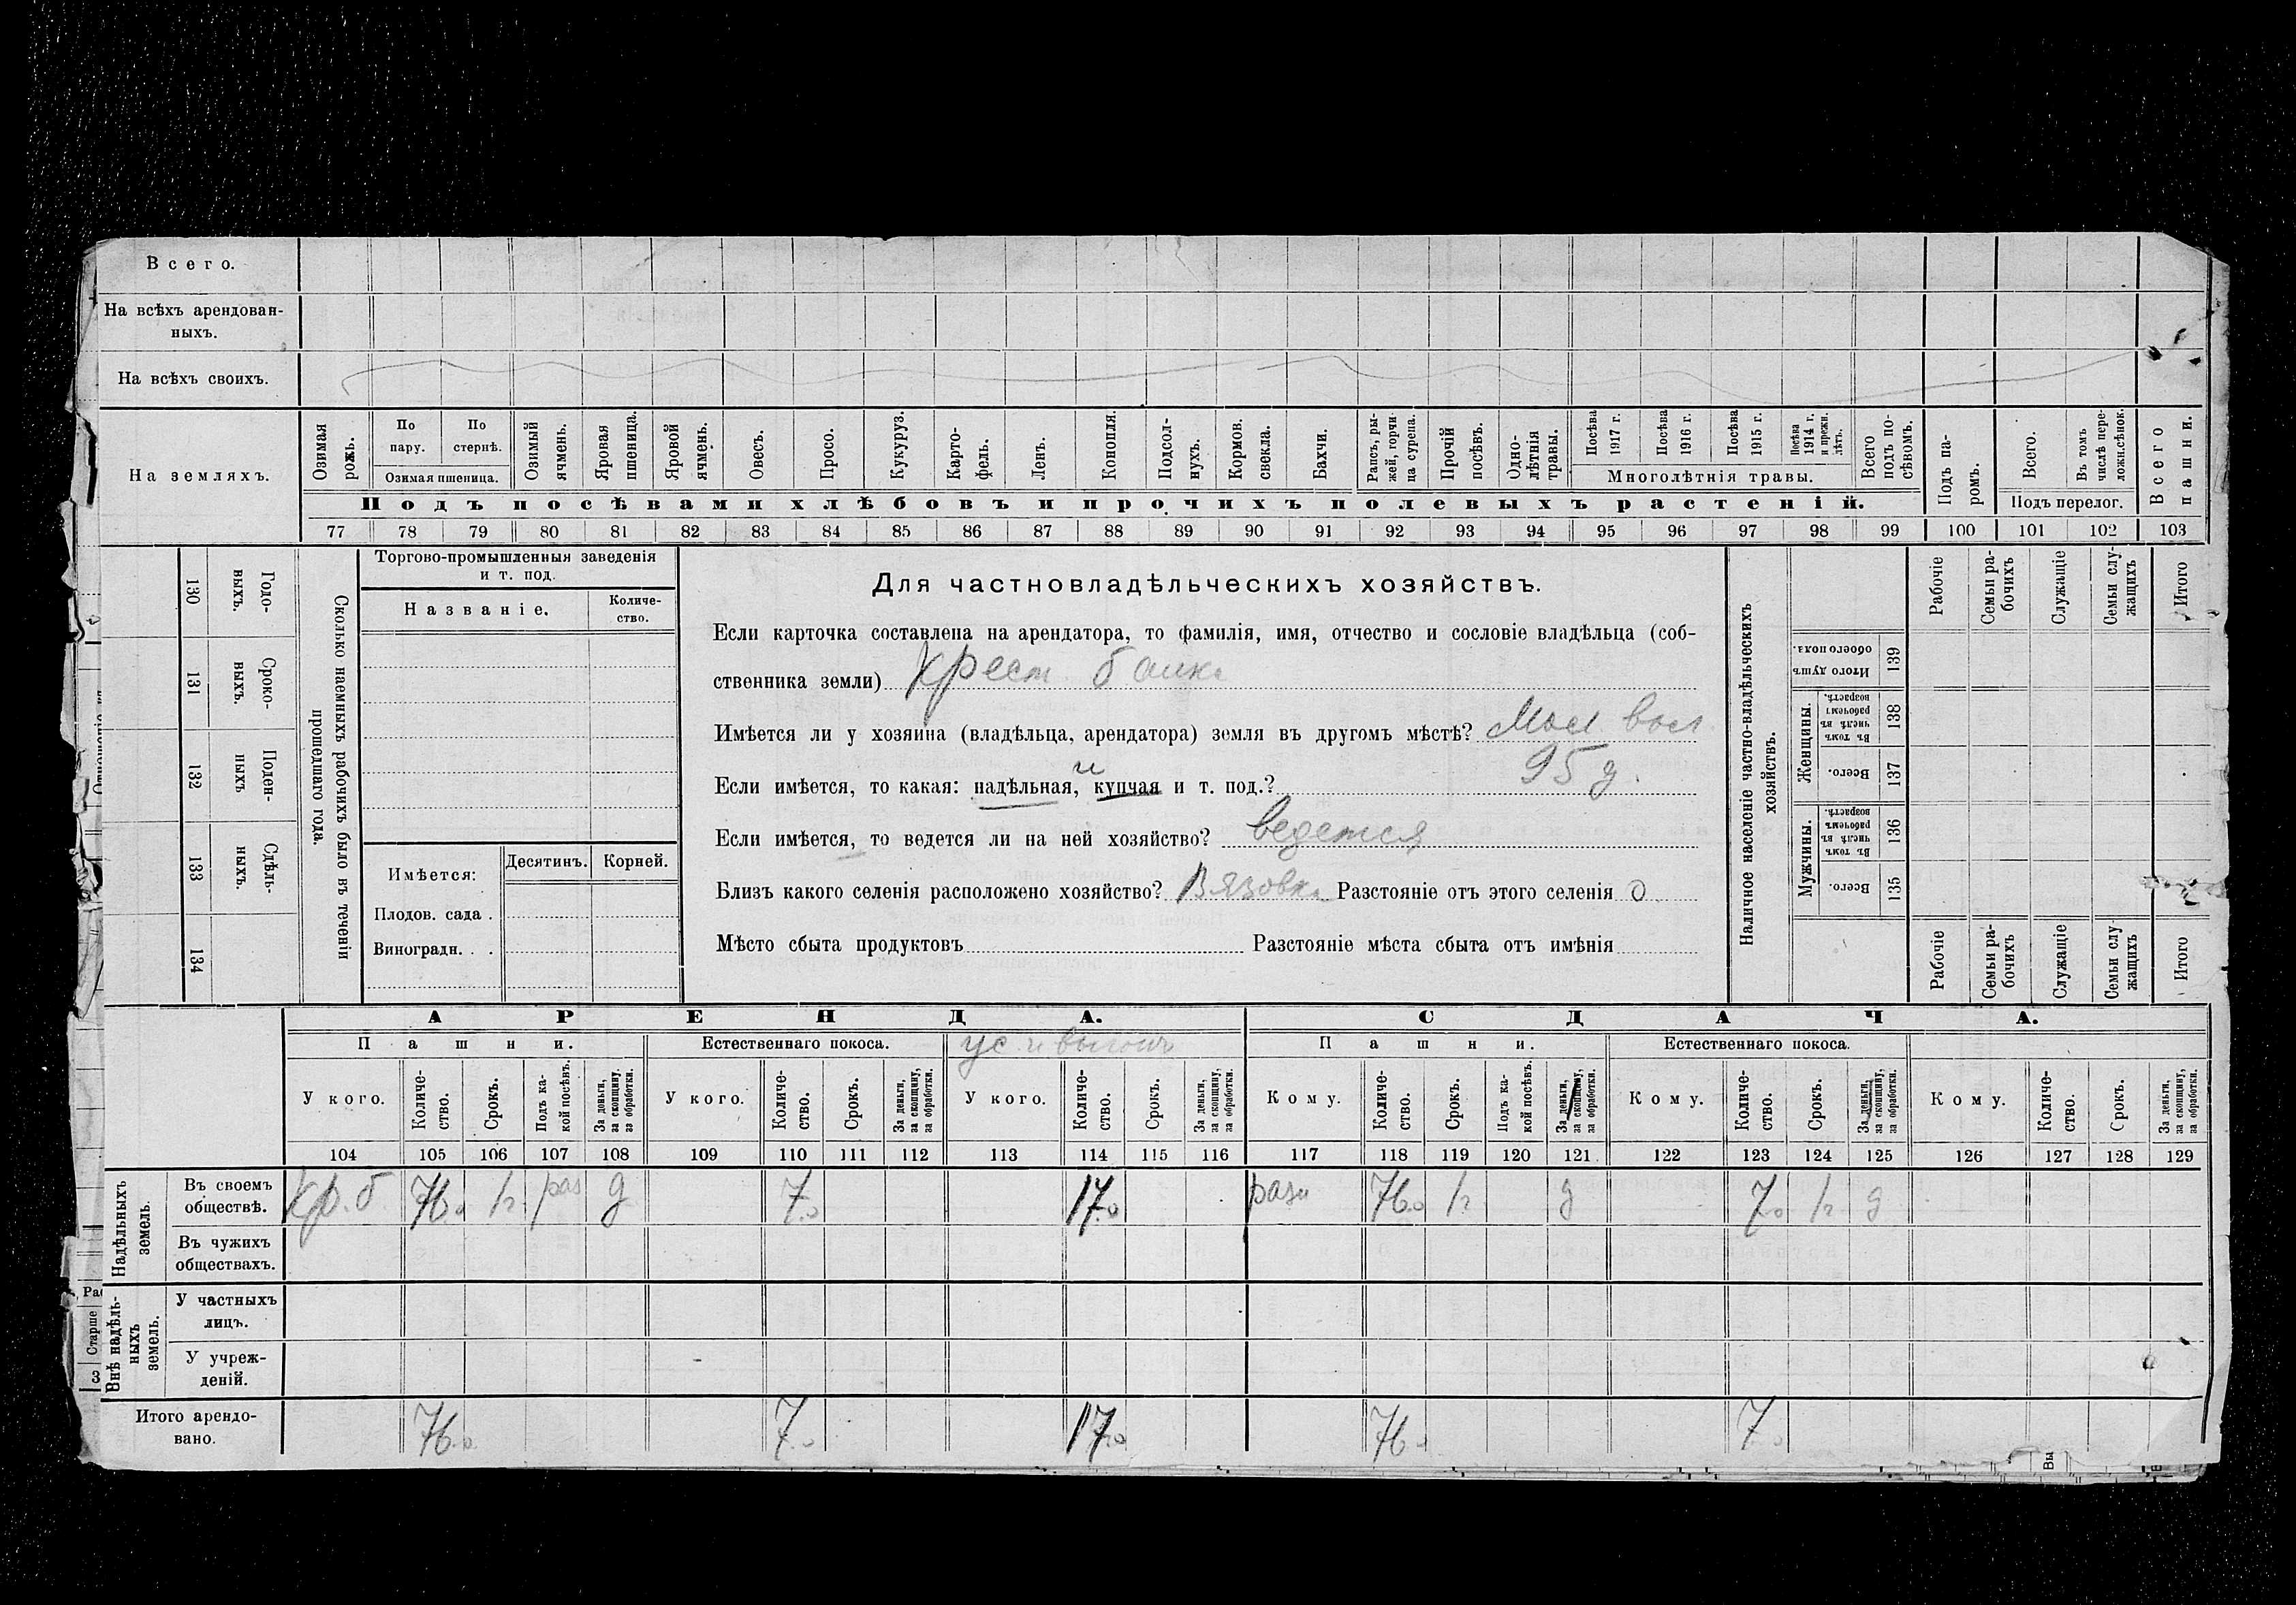 Всего.
На всѣхъ арендован-
ныхъ.
На всѣхъ своихъ.
На земляхъ.
Озимая рожь.
По пару.
По стернѣ.
Озимая пшеница.
Озимый ячмень.
Яровая пшеница.
Яровой ячмень.
Овесъ.
Просо.
Кукуруз.
Карто-
фель.
Ленъ.
Конопля.
Подсол-
нухъ.
Кормов. свекла.
Бахчи.
Рапсъ, ры-
жей, горчи-
ца сурепа.
Прочій посѣвъ.
Одно-
лѣтнія травы.
Посѣва 1917 г.
Посѣва 1916 г.
Посѣва 1915 г.
Посѣва 1914 г. и прежн. лѣтъ.
Многолѣтнія травы.
Всего подъ по-
сѣвомъ.
Подъ па-
ромъ.
Всего.
Въ томъ числѣ пере-
ложн.сѣнок.
Подъ перелог.
Всего пашни.
Подъ посѣвами хлѣбовъ и прочихъ полевыхъ растеній.
77 78 79 80 81 82 83 84 85 86 87 88 89 90 91 92 93 94 95 96 97 98 99 100 101 102 103
Годо-
выхъ.
130
Сроко-
выхъ.
131
Поден-
ныхъ
132
Сдѣль-
ныхъ.
133
134
Сколько наемныхъ рабочихъ было въ теченіи
прошедшаго года.
Торгово-промышленныя заведенія
и т. под.
Названіе.
Количе-
ство.
Имѣется:
Десятинъ.
Корней.
Плодов. сада .
Виноградн. . .
Для частновладѣльческихъ хозяйствъ.
Если карточка составлена на арендатора, то фамилія, имя, отчество и сословіе владѣльца (соб-
ственника земли) Крест. банкъ
Имѣется ли у хозяина (владѣльца, арендатора) земля въ другомъ мѣстѣ?
Если имѣется, то какая: надѣльная, и купчая и т. под.? 95 д.
Если имѣется, то ведется ли на ней хозяйство? ведется
Близъ какого селенія расположено хозяйство? Вязовка Разстояніе отъ этого селенія 0
Мѣсто сбыта продуктовъ Разстояніе мѣста сбыта отъ имѣнія
Наличное населеніе частно-владѣльческихъ
хозяйствъ.
Рабочіе
Семьи ра-
бочихъ
Служащіе
Семьи слу-
жащихъ
Итого
Итого душъ обоего пола.
139
Женщины.
Въ томъ числѣ въ рабочемъ возрастѣ.
138
Всего.
137
Мужчины.
Въ томъ числѣ въ рабочемъ возрастѣ.
136
Всего.
135
Рабочіе
Семьи ра-
бочихъ
Служащіе
Семьи слу-
жащихъ
Итого
АРЕНДА.
СДАЧА.
Пашни.
Естественнаго покоса.
Пашни.
Естественнаго покоса.
У кого. Количе-
ство. Срокъ. Подъ ка-
кой посѣвъ. За деньги, за скопщину, за обработки.
У кого. Количе-
ство. Срокъ. За деньги, за скопщину, за обработки.
У кого. Количе-
ство. Срокъ. За деньги, за скопщину, за обработки.
Кому. Количе-
ство. Срокъ. Подъ ка-
кой посѣвъ. За деньги, за скопщину, за обработки.
Кому. Количе-
ство. Срокъ. За деньги, за скопщину, за обработки.
Кому. Количе-
ство. Срокъ. За деньги, за скопщину, за обработки.
104 105 106 107 108 109 110 111 112 113 114 115 116 117 118 119 120 121 122 123 124 125 126 127 128 129
Надѣльныхъ
земель.
Въ своемъ
обществѣ.
Кр. б. 76.0 1г. раз д 7.0 17.0 разн 76.0 1г. д 7.0 1г. д
Въ чужихъ
обществахъ.
Внѣ надѣль-
ныхъ
земель.
У частныхъ
лицъ.
У учреж-
деній.
Итого арендо-
вано.
76.0 7.0 17.0 76.0 7.0
Старше
3
Вы